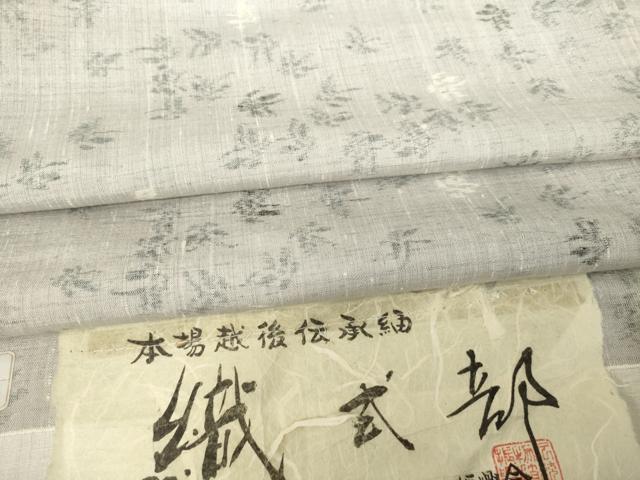 本場越後伝承紬
織式部